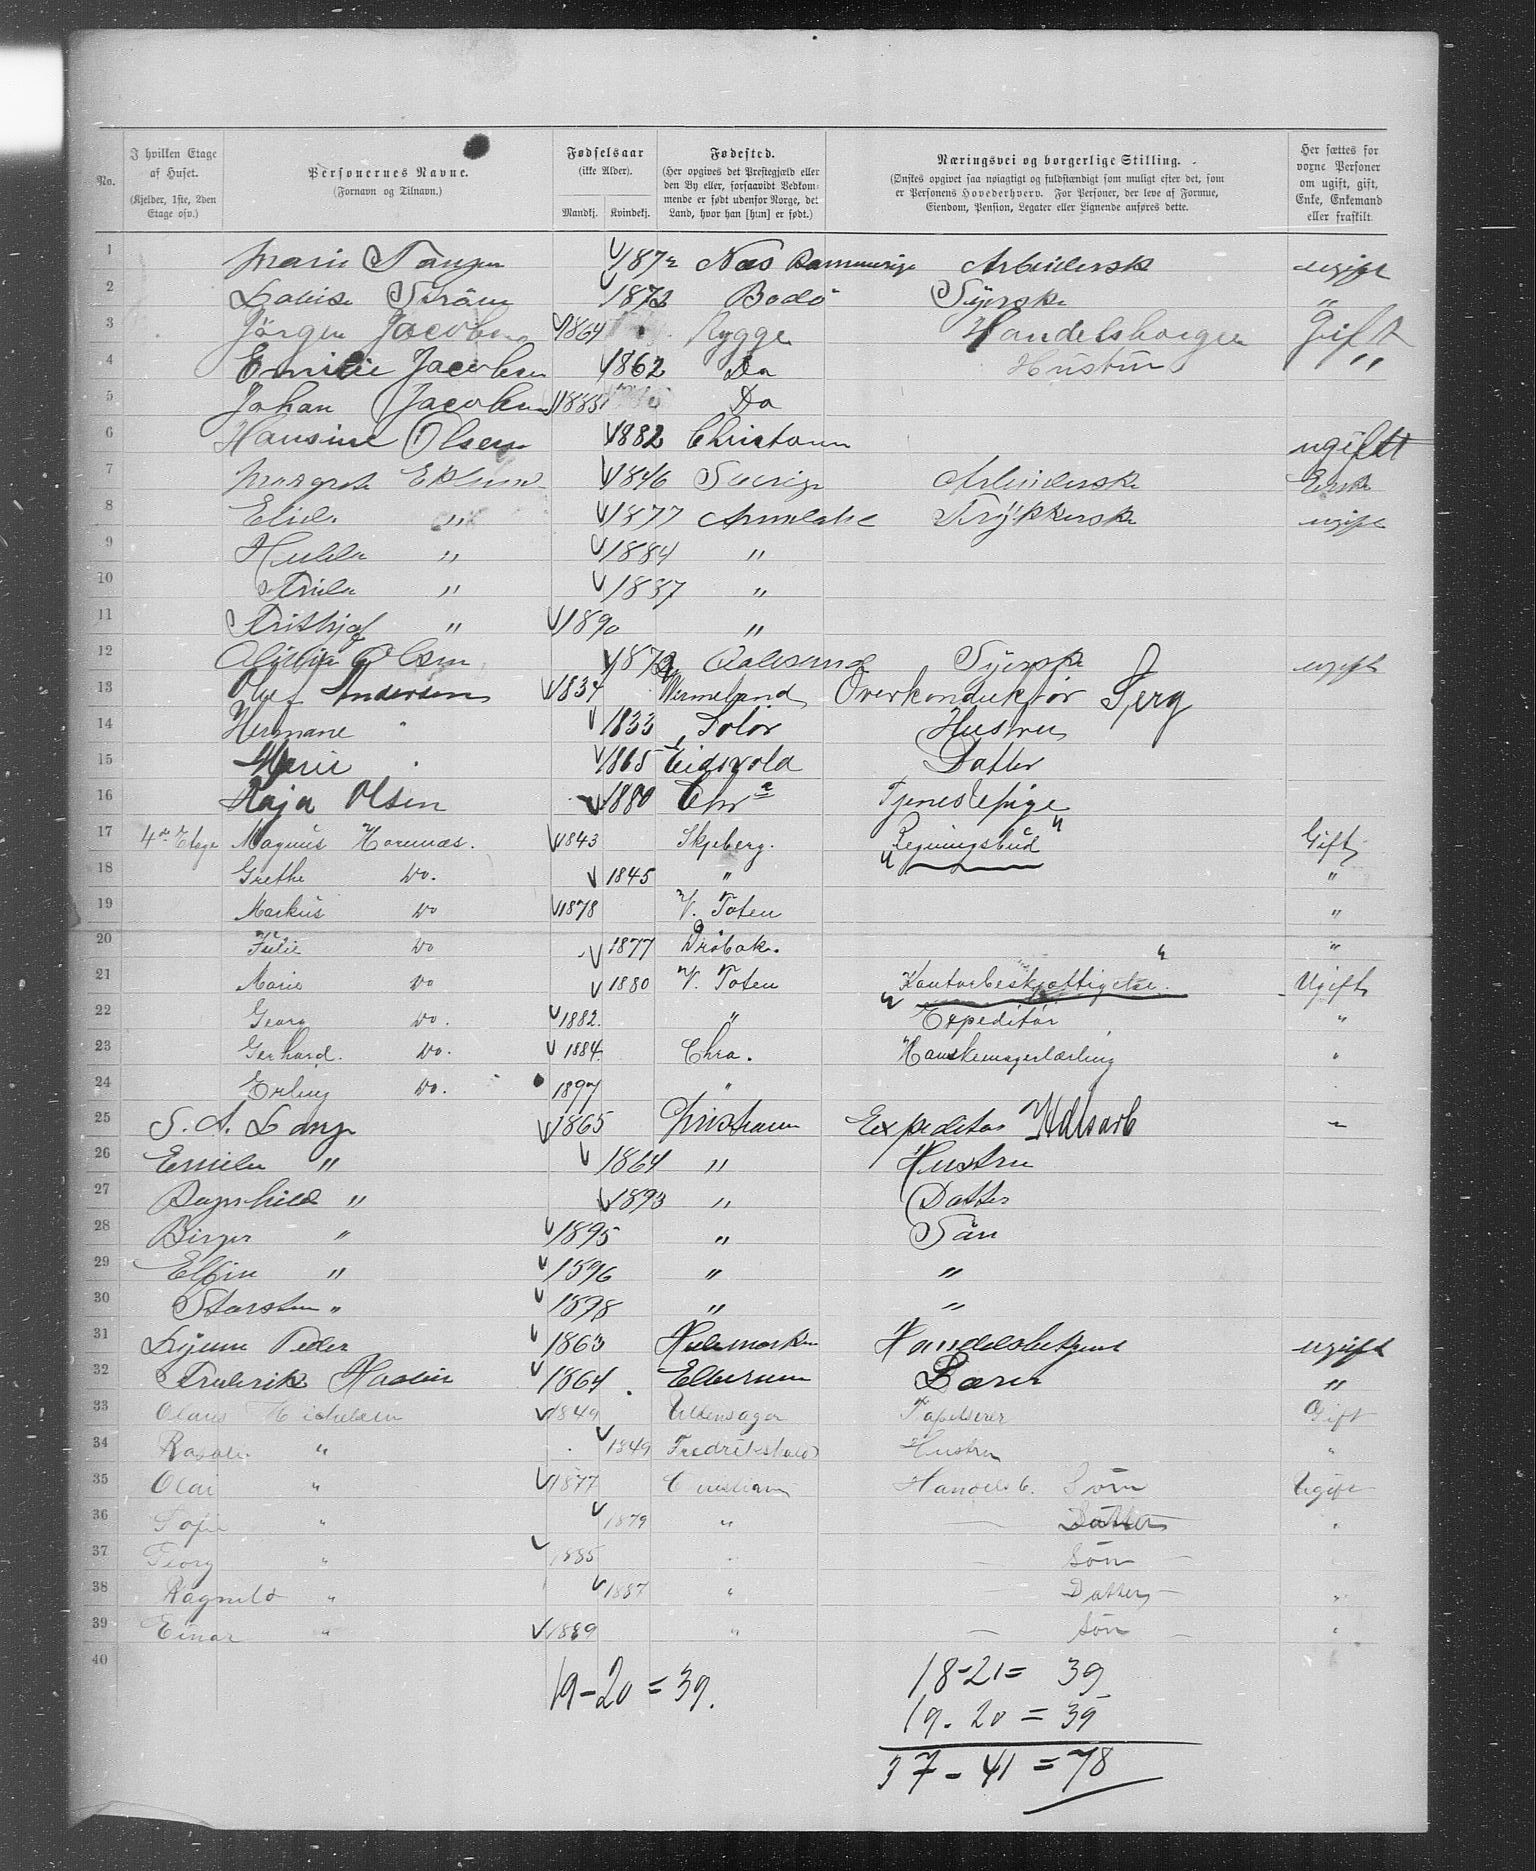 No.
I hvilken Etage af Huset.
(Kjelder, 1ste, 2den Etage osv.)
Personernes Navne.
(Fornavn og Tilnavn.)
Fødselsaar
(ikke Alder).
Mandkj. Kvindekj.
Fødested.
(Her opgives det Prestegjæld eller
den By eller, forsaavidt Vedkom-
mende er født udenfor Norge, det
Land, hvor han [hun] er født.)
Næringsvei og borgerlige Stilling.
(Ønskes opgivet saa nøiagtigt og fuldstændigt som muligt efter det, som
er Personens Hovederhverv. For Personer, der leve af Formue,
Eiendom, Pension, Legater eller Lignende anføres dette.
Her sættes for
voxne Personer
om ugift, gift,
Enke, Enkemand
eller fraskilt
1 Marie 1872 Næs Arbeiderske ugift
2 Lovise Ström 1872 Bodö Syerske "
3 Jörgen Jacobsen 1864 Rygge Handelsborger Gift
4 Emilie Jacobsen 1862 Do Hustru "
5 Johan Jacobsen 1885 Do
6 Hansine Olsen 1882 Christiania ugift
7 Margrete 1846 Sverige Arbeiderske Enke
8 " 1877 Trykkerske ugift
9 Hulda " 1884 "
10 " 1887 "
11 Frithjof " 1890 "
12 Olsen Aalesund Syerske ugift
13 Olaf Andersen 1834 Vermeland Overkonduktør
14 Hermane " 1833 Solør Hustru
15 Marie " 1865 Eidsvold Datter
16 Kaja Olsen 1880 Chra Tjenestepige
17 4de Etage Magnus 1843 Skjeberg. Regningsbud Gift
18 Grethe Do. 1845 " "
19 Markus Do 1878 V. Toten "
20 Julie Do 1877 Drøbak. "
21 Marie Do 1880 V. Toten Kontorbeskjæftigelse. Ugift
22 Georg Do. 1882. " Expeditör "
23 Gerhard. Do. 1884. Chra. Hanskemagerlærling "
24 Erling Do. 1897 "
25 S. A. Lange 1865 Christiania Expeditør "
26 Emilie " 1864 " Hustru
27 Ragnhild " 1893 " Datter
28 Birger " 1895 " Sön
29 " 1896 " "
30 " 1898 " "
31 Peder 1863 Hedemarken Handelsbetjent ugift
32 Frederik 1864 Elverum Lærer "
33 Olaus Michelsen 1849 Ullensager Tapetserer Gift
34 " 1849 Fredrikshald Hustru "
35 Olai " 1877 Christiania Handelsb. Sön Ugift
36 Sofie " 1879 " Datter "
37 Georg " 1885 " Sön
38 Ragnild " 1887 " Datter "
39 Einar " 1889 " Sön "
40
19-20 = 39.
18-21 = 39
19. 20 = 39
37-41 = 78